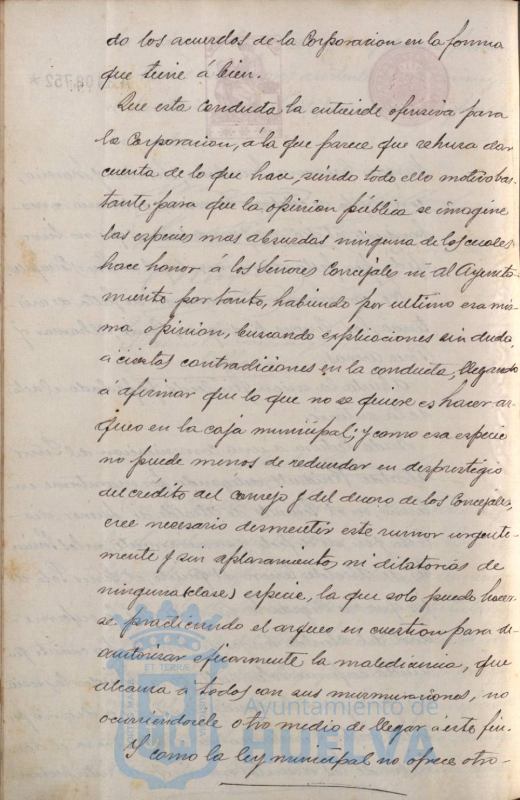 do los acuerdos de la Corporacion en la forma
que tiene á bien.
Que esta conducta la entiende ofensiva para
la Corporacion, á la que parece que rehusa dar
cuenta de lo que hace, siendo todo ello motivo bas-
tante para que la opinion pública se imagine
las especies mas absurdas ninguna de las cuales
hace honor á los Señores Concejales ni al Ayunta-
miento por tanto, habiendo por ultimo esa mis-
ma opinion, buscando esplicaciones sin duda,
á ciertas contradiciones en la conducta, llegado
á afirmar que lo que no se quiere es hacer ar-
queo en la caja municipal; y como esa especie
no puede menos de redundar en desprestigio
del crédito del Consejo y del decoro de los Concejales,
cree necesario desmentir este rumor urgente-
mente y sin aplazamiento, ni dilatorias de
ninguna (clase) especie, lo que solo puede hacer-
se practicando el arqueo en cuestion para de-
autorizar eficazmente la maledicencia, que
alcanza á todos con sus murmuraciones, no
ocurriendosele otro medio de llegar á este fin.
Y como la ley municipal no ofrece otro-
Ayuntamiento de
HUELVA